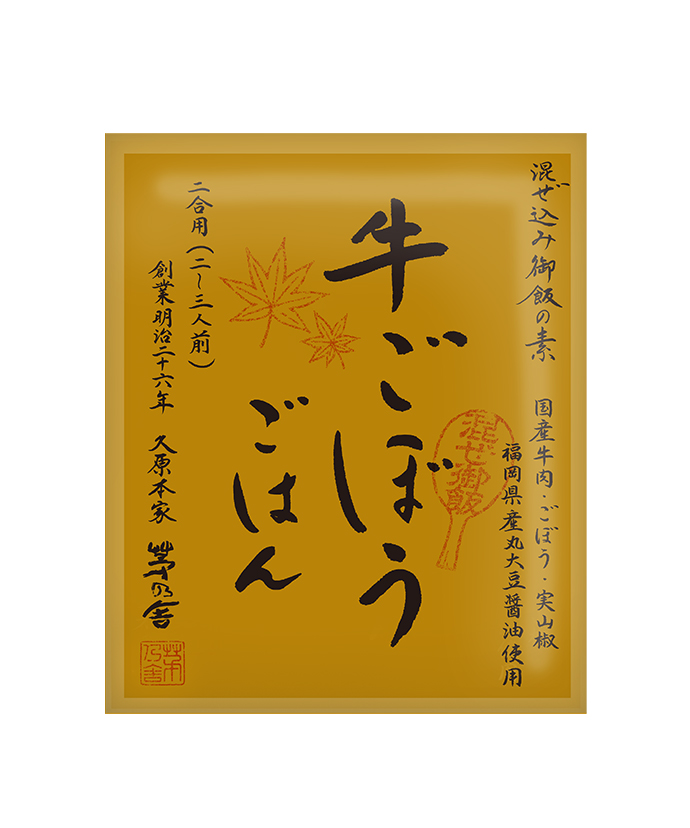 混ぜ込み御飯の素
国産牛肉・ごぼう・実山椒
福岡県産丸大豆醤油使用
混ぜ御飯
牛ごぼう
ごはん
二合用(二〜三人前)
創業明治二十六年 久原本家 茅乃舎
茅乃舎